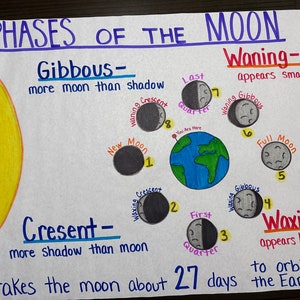 PHASES OF THE MOON
Gibbous-
more moon than shadow
Waning-
appears
Last
Quarter
7
Waning Crescent
8
Waning Gibbous
6
You Are Here
New Moon
1
Full Moon
5
Waxing Crescent
2
Waxing Gibbous
4
First
Quarter
3
Cresent-
more shadow than moon
appears
takes the moon about 27 days
to
the